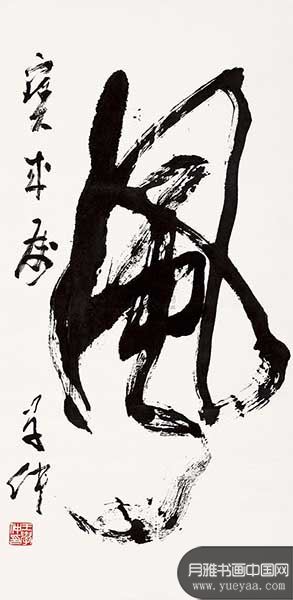 風
寶成属
学仲
月雅书画中国网
www.yueyaa.com